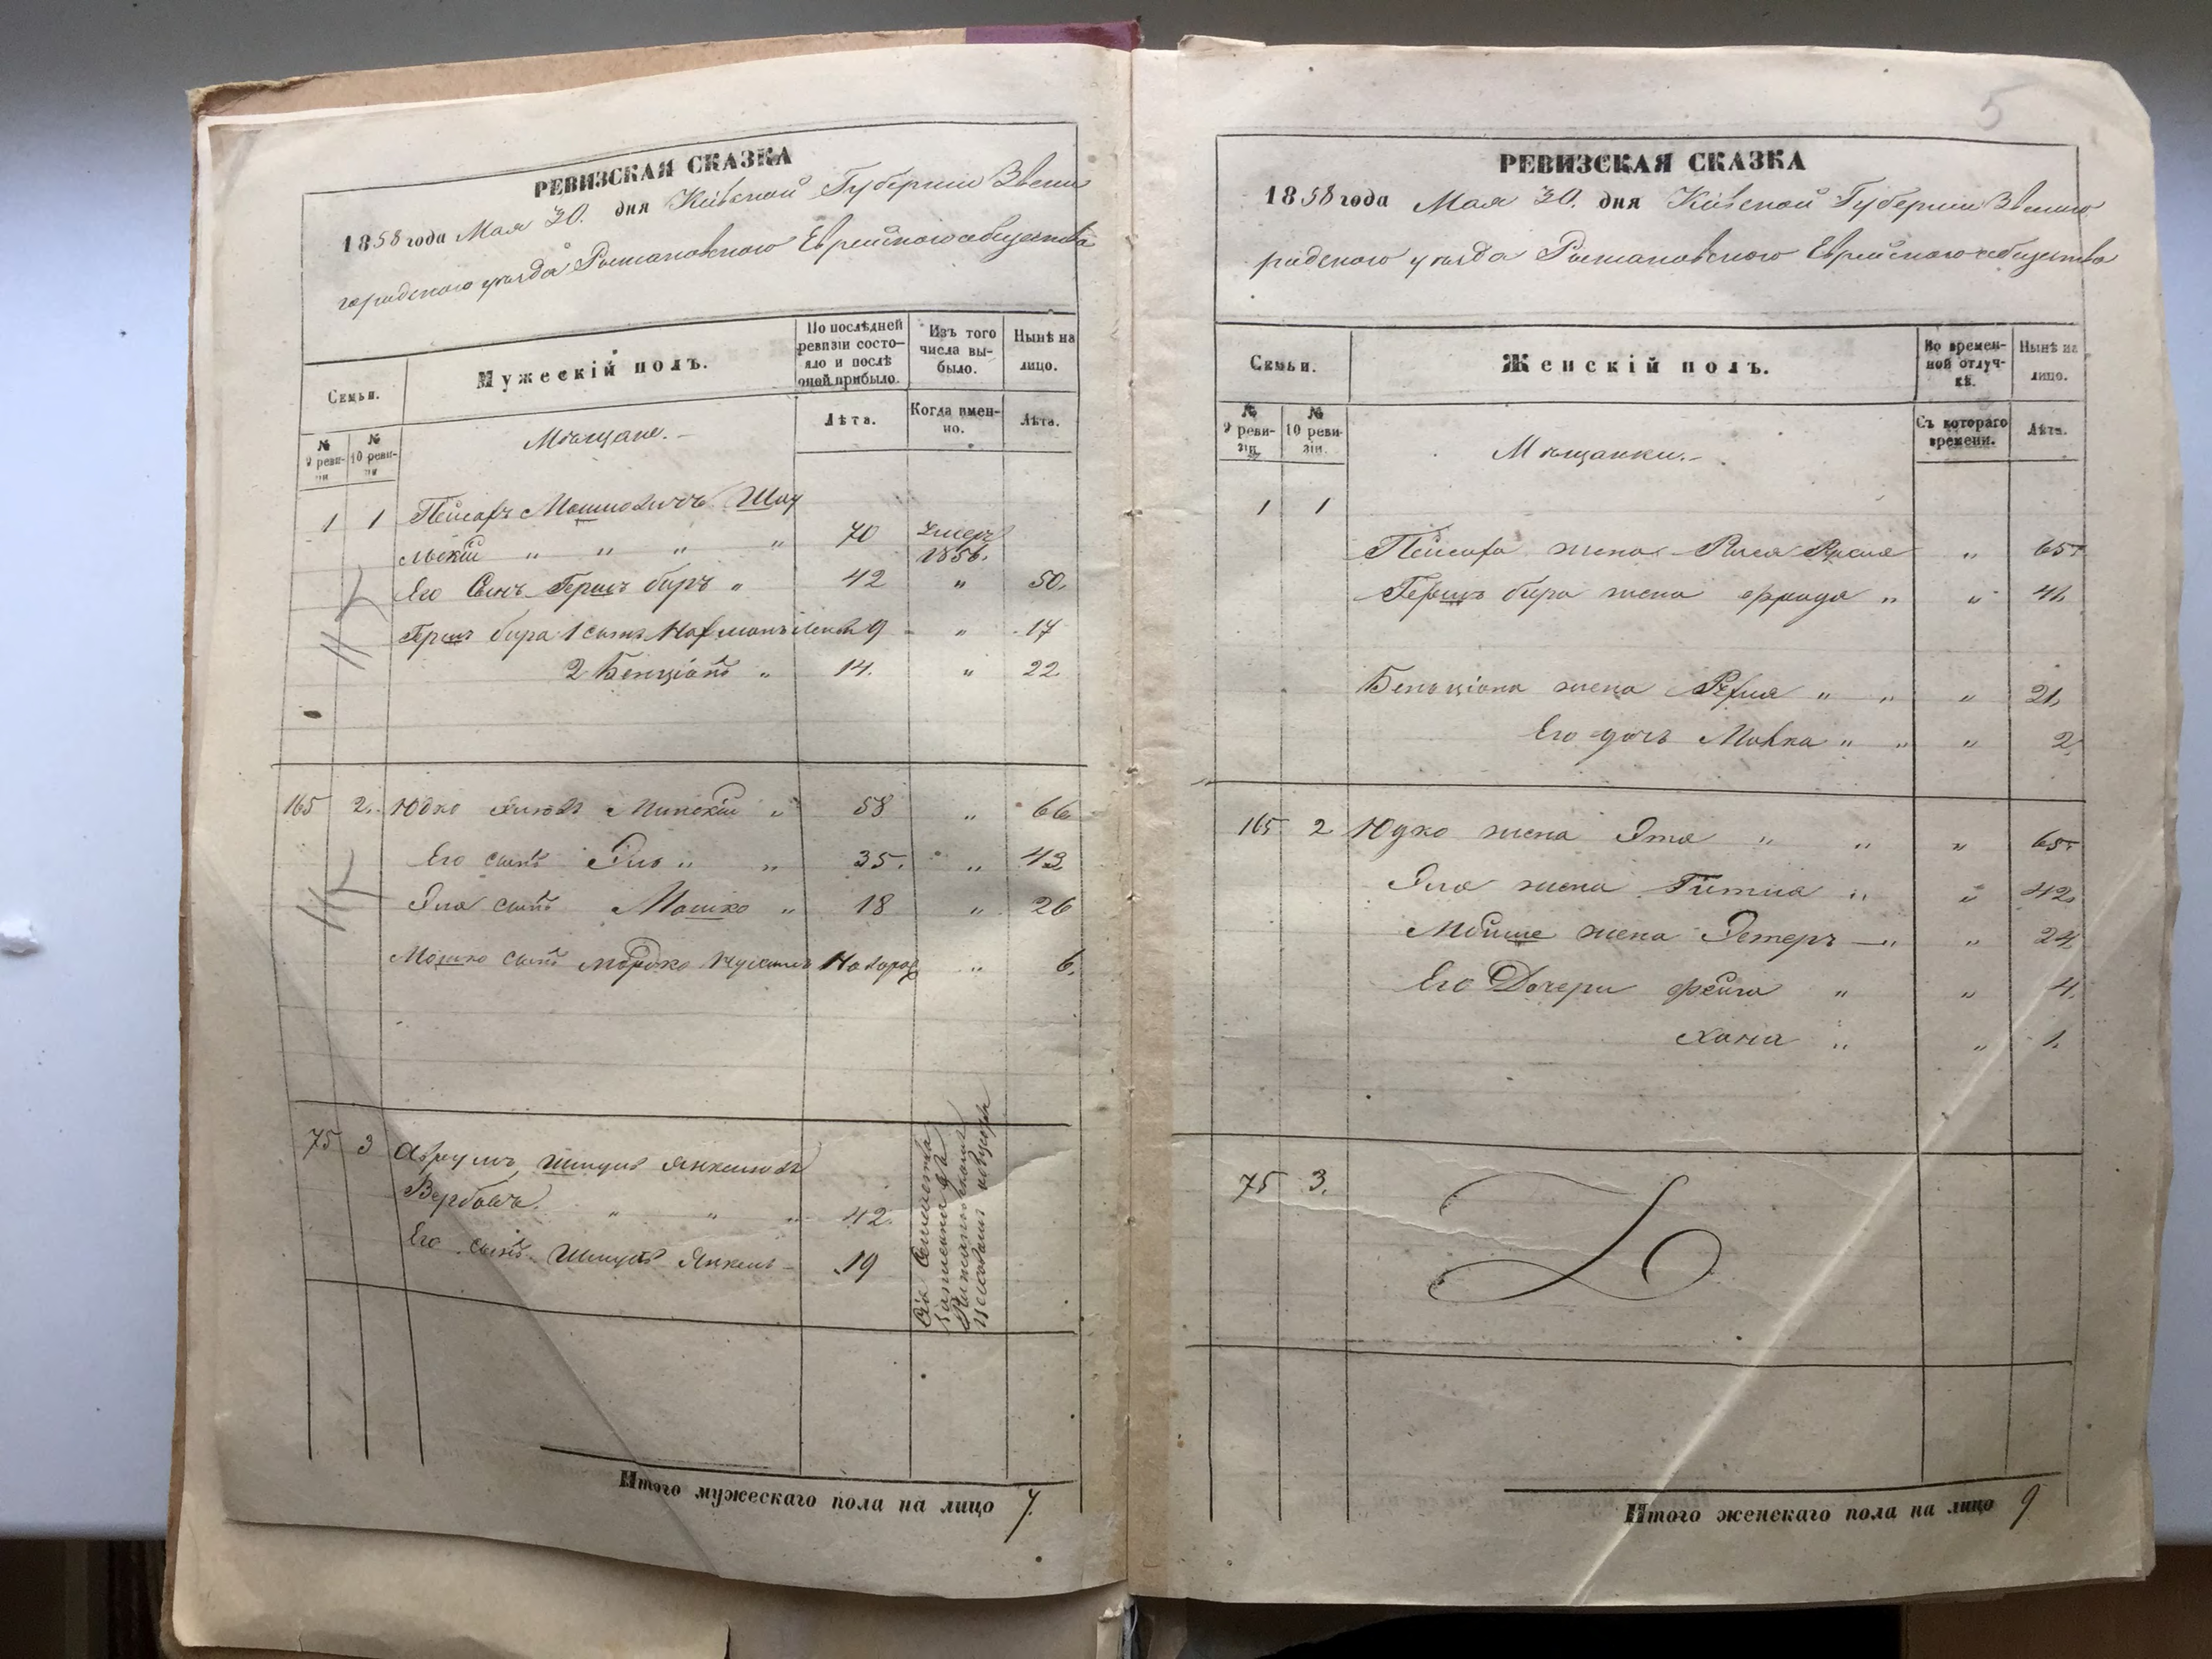 РЕВИЗСКАЯ СКАЗКА
1858 года Мая 30. дня Кіевской Губерніи Звени
городского уѣзда Рыжановского Еврейского общества
Семьи.
Мужескій полъ.
По послѣдней ревизіи состояло и послѣ оной прибыло.
Изъ того числа выбыло.
Нынѣ на лицо.
№ 9 ревизіи
№ 10 ревизіи
Мѣщане.
Лѣта.
Когда имен-но.
Лѣта.
1 1 Пейсахъ Мошковичъ
" " " " 70 Умеръ 1856.
Его Сынъ Гершъ беръ " 42 " 50.
Гершъ бера 1 сынъ 9 " 17
2 Бенціонъ " 14. " 22
165 2. Юдко Минскій " 58 " 66
Его сынъ Эль " " 35. " 43
Эля сынъ Мошко " 18 " 26
Мошко сынъ Мордко Новорож " 6.
75 3 Аврумъ Шмуль Янкелевъ
" " " 42.
Его сынъ Шмуль Янкель 19
Итого мужескаго пола на лицо 7.
5
РЕВИЗСКАЯ СКАЗКА
1858 года Мая 30. дня Кіевской Губерніи Звениго
родского уѣзда Рыжановского Еврейского общества
Семьи.
Женскій полъ.
Во времен-ной отлуч-кѣ.
Нынѣ на лицо.
№ 9 реви-зіи.
№ 10 реви-зіи.
Мѣщанки.
Съ котораго времени.
Лѣта.
1 1
Пейсаха жена Рися " 65
Гершъ бера жена Фрейда " "
Бенціона жена " " " 21.
Его дочь Малка " " " 2
165 2 Юдко жена Эта " " " 65
Эля жена Гитля " " 42.
Мойше жена Эстеръ " " 24
Его Дочери Фейга " " 4.
Хана " " 1.
75 3.
Итого женскаго пола на лицо 9